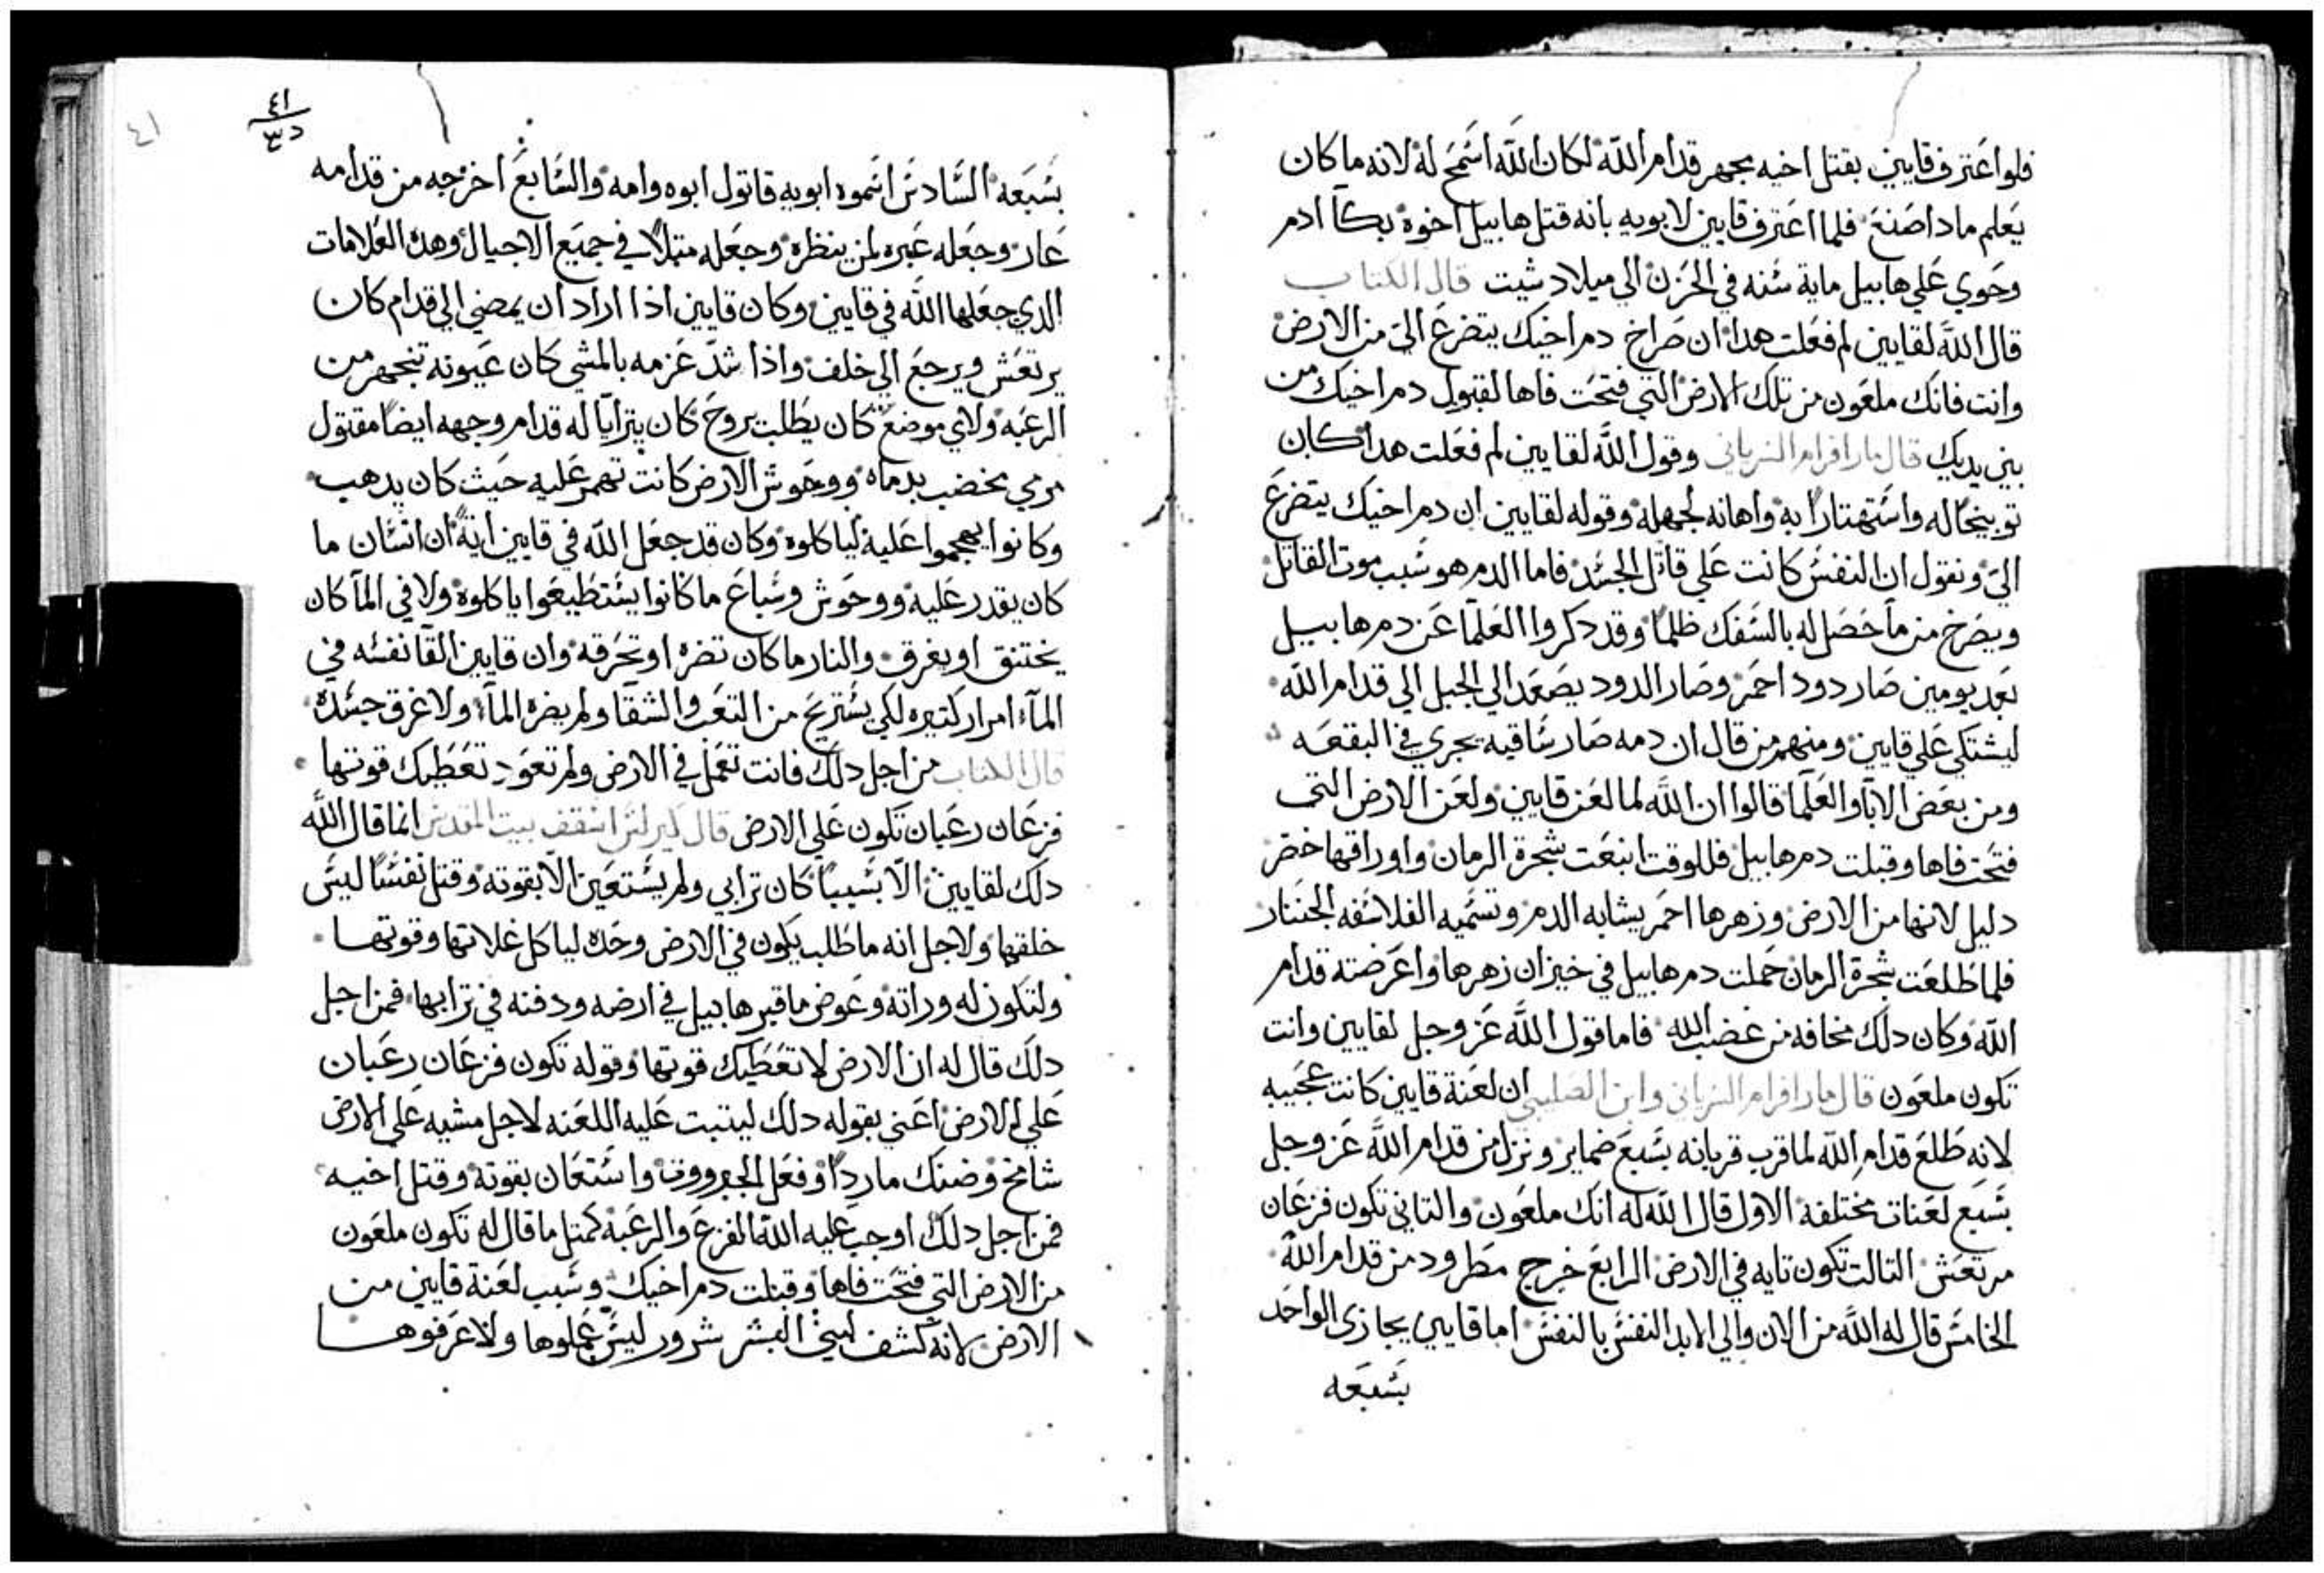 فلو اعترف قايين بقتل اخيه بجهر قدام الله لكان الله اسمح له لانه ما كان
يعلم مادا صنع فلما اعترف قايين لابويه بانه قتل هابيل اخوه بكا ادم
وحوي علي هابيل ماية سنه في الحزن الي ميلاد شيت قال الكتاب
قال الله لقايين لم فعلت هدا ان صراخ دم اخيك يتضرع الي من الارض
وانت فانك ملعون من تلك الارض التي فتحت فاها لقبول دم اخيك من
بين يديك قال مار افرام السرياني وقول الله لقايين لم فعلت هدا كان
توبيخا له واستهتارا به واهانه لجهله وقوله لقايين ان دم اخيك يتضرع
الي ونقول ان النفس كانت علي قاتل الجسد فاما الدم هو سبب موت القاتل
ويصرخ من ما حصل له بالسفك ظلما وقد دكروا العلما عن دم هابيل
بعد يومين صار دود احمر وصار الدود يصعد الي الجبل الي قدام الله
ليشتكي علي قايين ومنهم من قال ان دمه صار ساقيه يجري في البقعه
ومن بعض الابا والعلما قالوا ان الله لما لعن قايين ولعن الارض التي
فتحت فاها وقبلت دم هابيل فللوقت انبعت شجرة الرمان واوراقها خضر
دليل لانها من الارض وزهرها احمر يشابه الدم وتسميه الفلاسفه الجنار
فلما طلعت شجرة الرمان حملت دم هابيل في خيزان زهرها واعرضته قدام
الله وكان دلك مخافه من غضب الله فاما قول الله عز وجل لقايين وانت
تكون ملعون قال مار افرام السرياني وابن الصليبي ان لعنة قايين كانت عجيبه
لانه طلع قدام الله لما قرب قربانه بسبع ضماير ونزل من قدام الله عز وجل
بسبع لعنات مختلفه الاول قال الله له انك ملعون والتاني تكون فزعان
مرتعش التالت تكون تايه في الارض الرابع خرج مطرود من قدام الله
الخامس قال له الله من الان والي الابد النفس بالنفس اما قايين يجازي الواحد
بسبعه
٤١
٤١
د ٣
بسبعه السادس اسموه ابويه قاتول ابوه وامه والسابع اخرجه من قدامه
عار وجعله عبره لمن ينظره وجعله متلا في جميع الاجيال وهده العلامات
الدي جعلها الله في قايين وكان قايين ادا اراد ان يمضي الي قدام كان
يرتعش ويرجع الي خلف وادا شد عزمه بالمشي كان عيونه تنجهر من
الرعبه ولاي موضع كان يطلب يروح كان يترايا له قدام وجهه ايضا مقتول
مرمي مخضب بدماه ووحوش الارض كانت تهمر عليه حيث كان يدهب
وكانوا يهجموا عليه لياكلوه وكان قد جعل الله في قايين اية ان انسان ما
كان يقدر عليه ووحوش وسباع ما كانوا يستطيعوا ياكلوه ولا في الما كان
يختنق او يغرق والنار ما كان تضره او تحرقه وان قايين القا نفسه في
الماء امرار كتيره لكي يستريح من التعب والشقا ولم يضره الماء ولا غرق جسده
قال الكتاب من اجل دلك فانت تعمل في الارض ولم تعود تعطيك قوتها
فزعان رعبان تكون علي الارض قال كيرلس اسقف بيت المقدس انما قال الله
دلك لقايين الا بسببا كان ترابي ولم يستعين الا بقوته وقتل نفسا ليس
خلقها ولاجل انه ما طلب يكون في الارض وحده لياكل غلاتها وقوتها
ولتكون له وراته وعوض ما قبر هابيل في ارضه ودفنه في ترابها فمن اجل
دلك قال له ان الارض لا تعطيك قوتها وقوله تكون فزعان رعبان
علي الارض اعني بقوله دلك ليتبت عليه اللعنه لاجل مشيه علي الارض
شامخ وضنك ماردا وفعل الجبرووت واستعان بقوته وقتل اخيه
فمن اجل دلك اوجب عليه الله الفزع والرعبه كمتل ما قال له تكون ملعون
من الارض التي فتحت فاها وقبلت دم اخيك وسبب لعنة قايين من
الارض لانه كشف لبني البشر شرور ليس عملوها ولا عرفوها